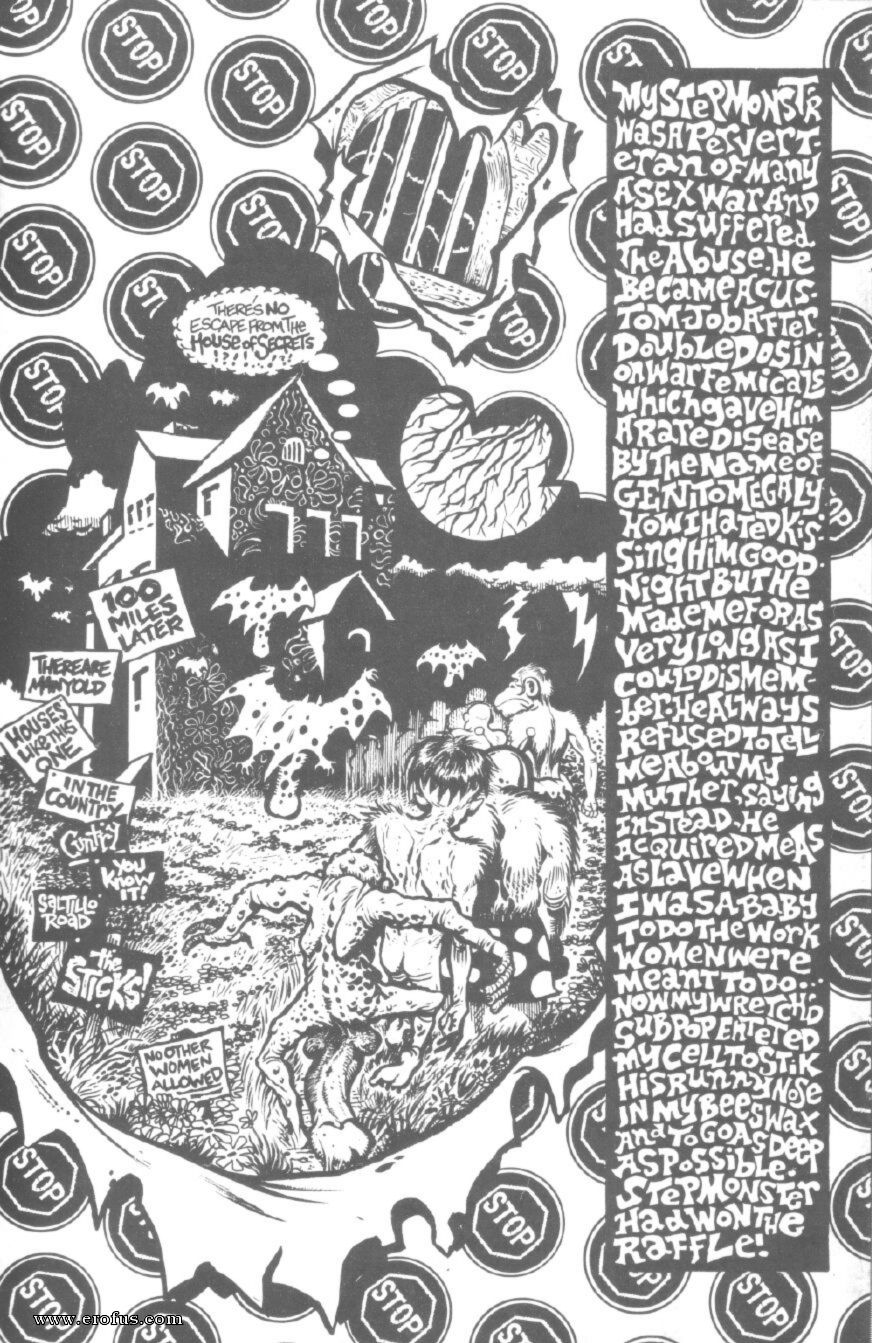 STOP
STOP
STOP
STOP
STOP
STOP
STOP
STOP
STOP
STOP
THERE'S NO
ESCAPE FROM THE
HOUSE OF SECRETS
!?!!?!?!
100
MILES
LATER
THERE ARE
MANY OLD
HOUSES
LIKE THIS
ONE
IN THE
COUNTRY
CUNTRY
YOU
KNOW
IT!
SALTILLO
ROAD
THE
STICKS!
NO OTHER
WOMEN
ALLOWED
MY STEPMONSTR
WAS A PERVERT-
ERAN OF MANY
A SEX WAR AND
HAD SUFFERED
THE ABUSE. HE
BECAME A CUS-
TOM JOB AFTER
DOUBLE DOSIN
ON WARFEMICALS
WHICH GAVE HIM
A RATE DISEASE
BY THE NAME OF
GENTOMEGALY
HOW I HATED KIS-
SING HIM GOOD-
NIGHT BUT HE
MADE ME FOR AS
VERY LONG AS I
COULD DISMEM-
BER. HE ALWAYS
REFUSED TO TELL
ME ABOUT MY
MUTHER, SAYING
INSTEAD, HE
ACQUIRED ME AS
A SLAVE WHEN
I WAS A BABY
TO DO THE WORK
WOMEN WERE
MEANT TO DO...
NOW MY WRETCH'D
SUBPOP ENTETED
MY CELL TO STIK
HIS RUNNY NOSE
IN MY BEESWAX
AND TO GO AS DEEP
AS POSSIBLE.
STEPMONSTER
HAD WON THE
RAFFLE!
STOP
STOP
STOP
STOP
www.erofus.com